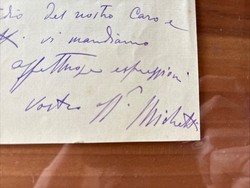 del nostro caro e
vi mandiamo
affettuose espressioni
vostro aff. Michetti